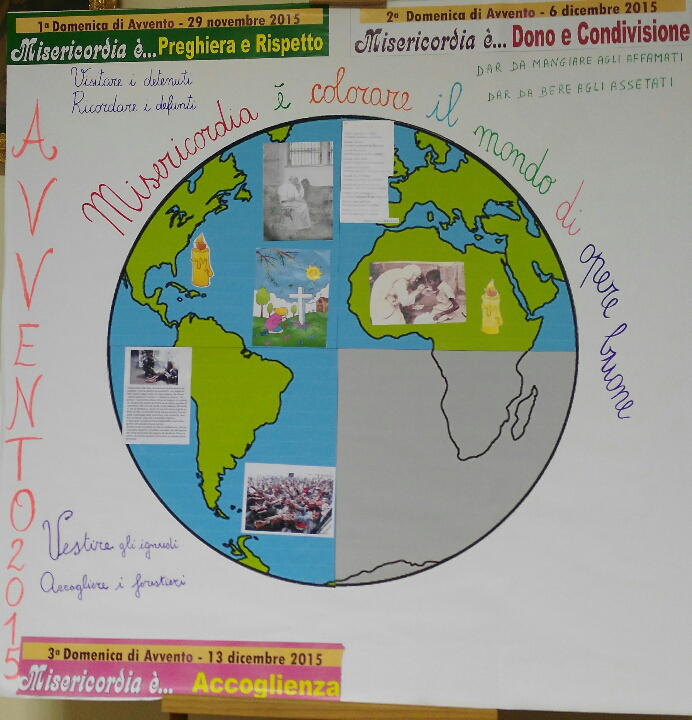 1ª Domenica di Avvento - 29 novembre 2015
Misericordia è... Preghiera e Rispetto
2ª Domenica di Avvento - 6 dicembre 2015
Misericordia è... Dono e Condivisione
Visitare i detenuti
Ricordare i defunti
DAR DA MANGIARE AGLI AFFAMATI
DAR DA BERE AGLI ASSETATI
AVVENTO 2015
Misericordia é colorare il mondo di opere buone
Vestire gli ignudi
Accogliere i forestieri
3ª Domenica di Avvento - 13 dicembre 2015
Misericordia è... Accoglienza